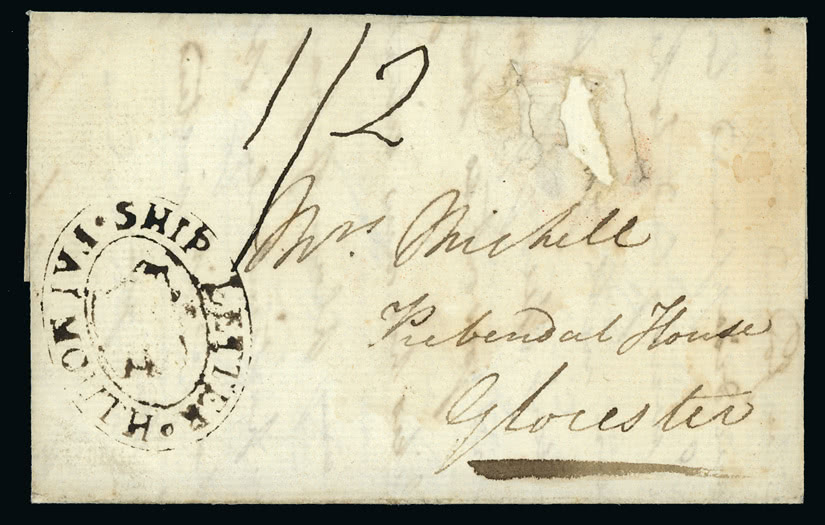 1/2
SHIP LETTER · FALMOUTH ·
Mrs. Michell
Prebendal House
Glocester